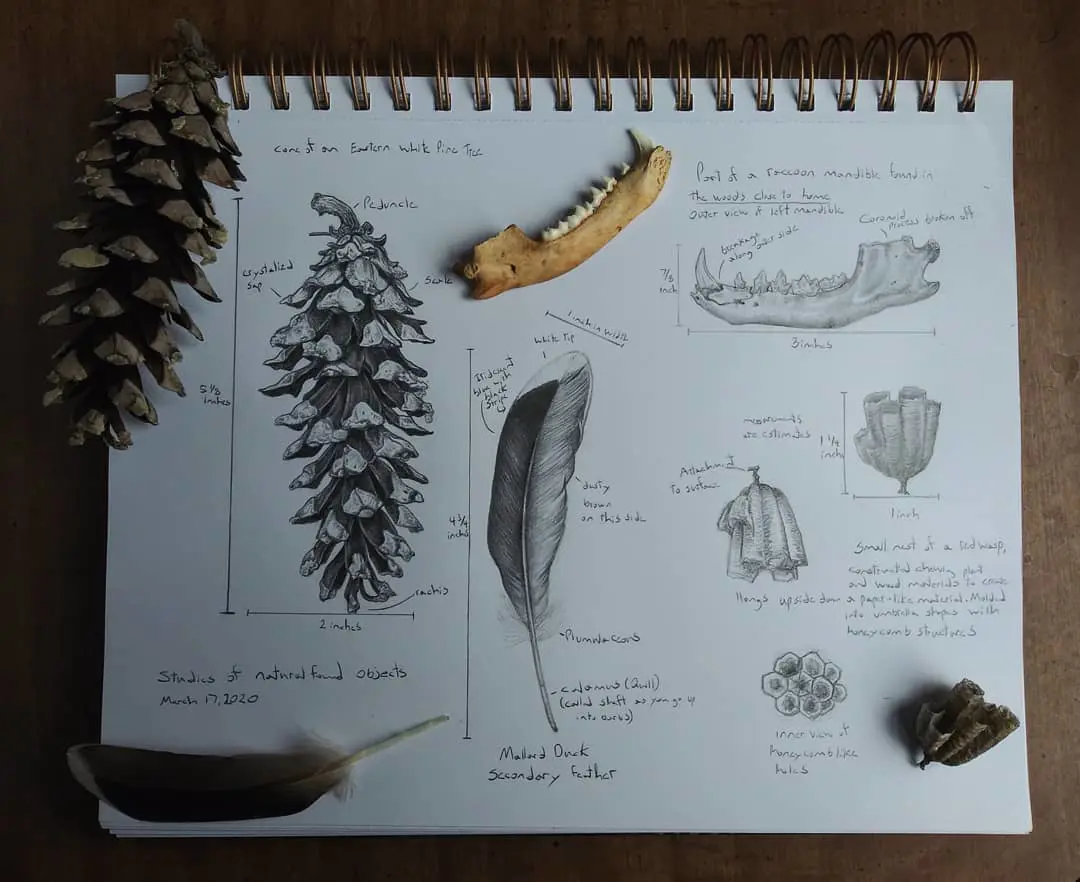 cone of an Eastern White Pine Tree
Peduncle
crystalized
sap
Scale
5 1/8
inches
2 inches
rachis
Studies of natural found objects
March 17, 2020
1 inch in width
White Tip
Iridescent
blue with
black
stripe
dusty
brown
on this side
4 3/4
inches
Plumulaceous
calamus (Quill)
(called shaft as you go up
into barbs)
Mallard Duck
Secondary Feather
Part of a raccoon mandible found in
the woods close to home
Outer view of left mandible
breakage
along outer side
Coronoid
Process broken off
7/8
inch
3 inches
measurements
are estimates
1 1/4
inch
1 inch
Attachment
to surface
Hangs upside down
Small nest of a red wasp,
constructed chewing plant
and wood materials to create
a paper-like material. Molded
into umbrella shapes with
honeycomb structures
inner view of
honeycomb like
holes